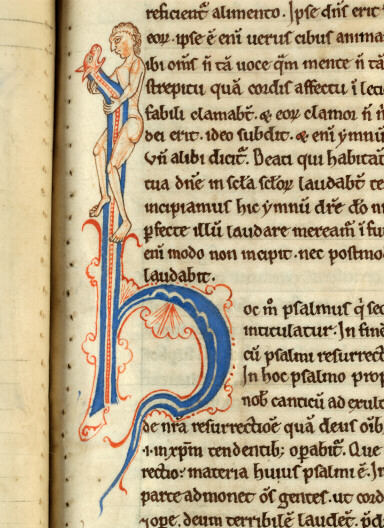 reficient alimento. Ipse dñs erit
eoꝝ. ipse ē eni uerus cibus anima
ibi om̄s ñ tā uoce q̄m mente ñ tā
strepitu quā cordis affectu ī leti
fabili clamabt̄. & eoꝝ clamor ñ
dei erit. ideo subdit. & eni ymnū
Vñ alibi dicit̄. Beati qui habitāt
tua dñe in scl̄a scl̄oꝝ laudabt̄ te
incipiamus hic ymnū dr̄e
ꝑfecte illū laudare meream̄ ī fu
eni modo non incipit. nec postmod
laudabit.
hoc m̄ psalmus
intitulatur. In finē
cū psalmi resurrect
In hoc psalmo prop
nob̄ canticū ad exult
de nr̄a resurrectiōe quā deus oīb;
.i. in xp̄m tendentib; oꝑabit̄. Que
rectio: materia huius psalmi ē. In
parte admonet ōs gentes. ut cord
⁊ ope. deum terribilē laudēt.